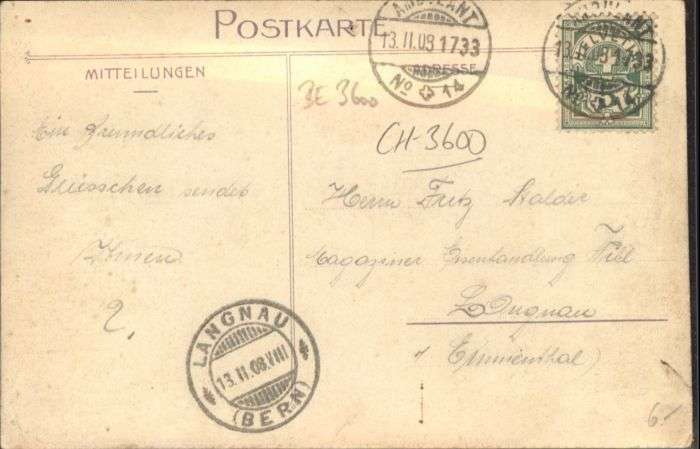 POSTKARTE
AMBULANT
13.II.08 1733
No 14
HELVETIA
MITTEILUNGEN
ADRESSE
BE 3600
CH-3600
Ein freundliches
Grüsschen sendet
Ihnen
Herrn Fritz Stalder
Magaziner Eisenhandlung
Langnau
Emmenthal)
LANGNAU
13.II.08.VIII
(BERN)
6.-